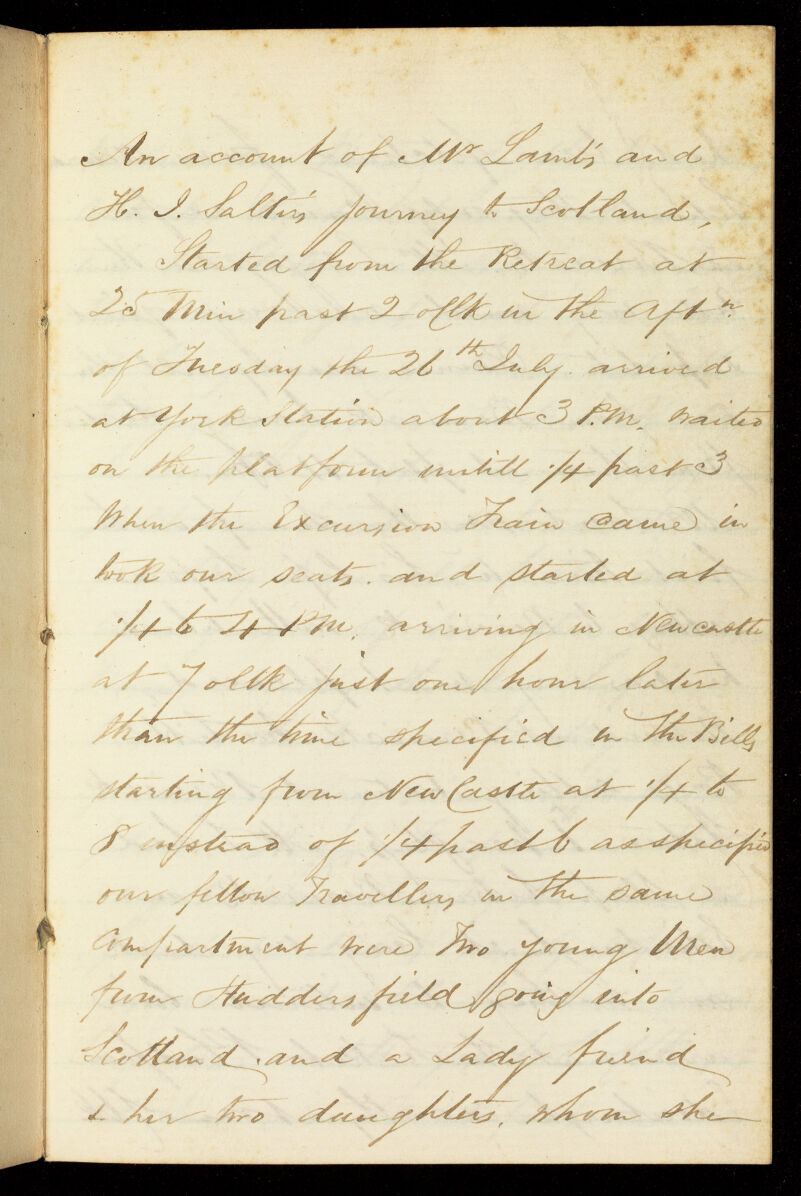 An account of Mr Lamb's and
H. I. Salter's journey to Scotland,
Started from the Retreat at
25 Min past 2 oClk in the Aftn.
of Tuesday the 26th July. arrived
at York Station about 3 P.M. waited
on the platform untill 1/4 past 3
When the Excursion Train came in
took our seats. and started at
1/4 to 4 P.M. arriving in Newcastle
at 7 oClk just one hour later
than the time specified in the Bills
starting from NewCastle at 1/4 to
8 instead of 1/4 past 6 as specified
our fellow Travellers in the same
Compartment were Two young Men
from Huddersfield going into
Scotland. and a Lady friend
& her two daughters. whom she